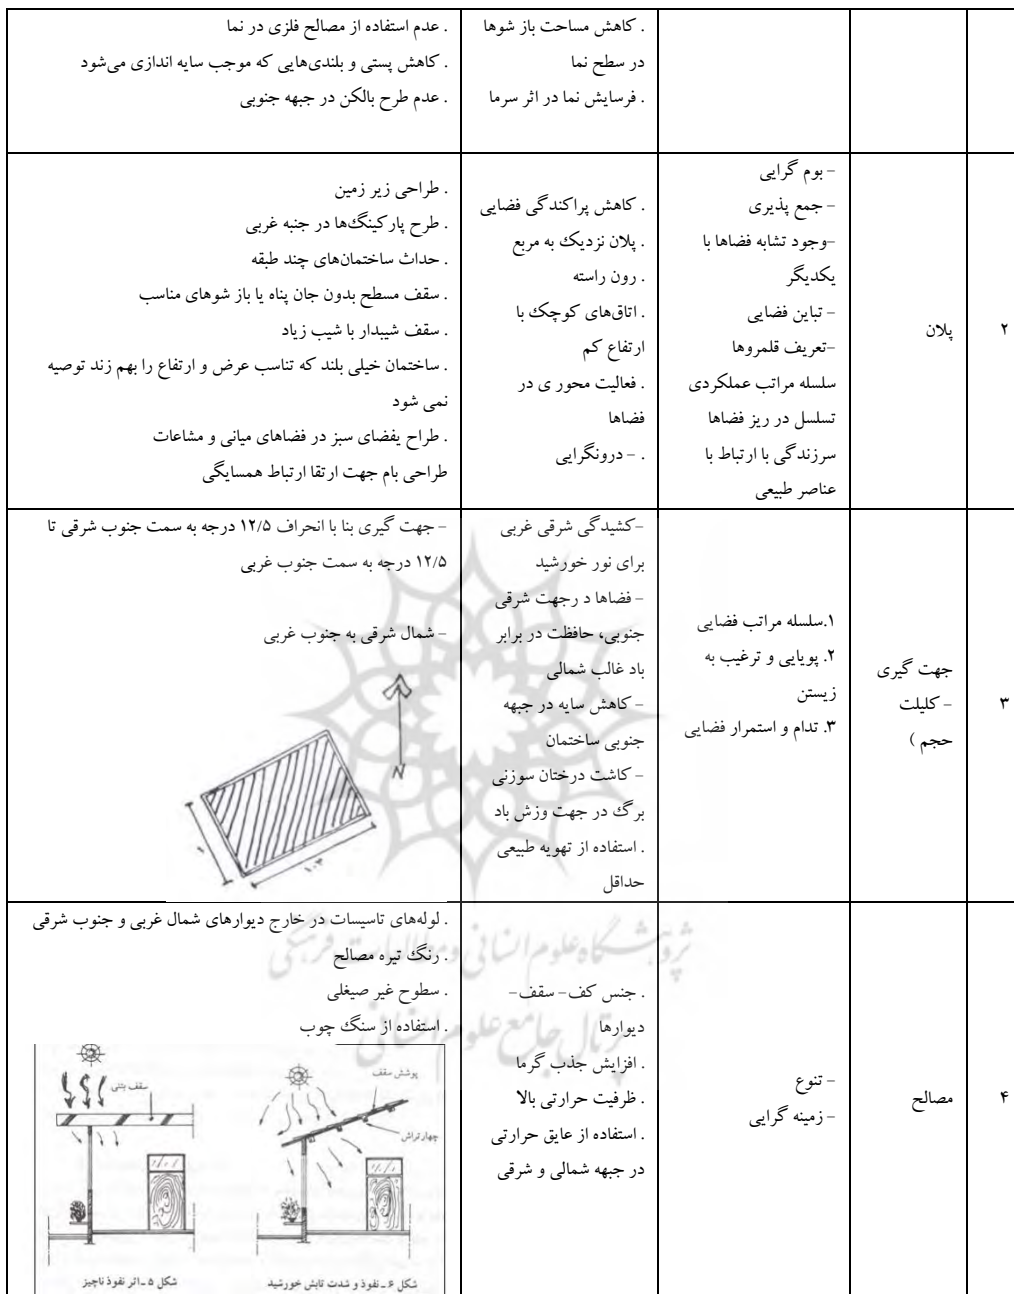 . کاهش مساحت باز شوها
در سطح نما
. فرسایش نما در اثر سرما
. عدم استفاده از مصالح فلزی در نما
. کاهش پستی و بلندی‌هایی که موجب سایه اندازی می‌شود
. عدم طرح بالکن در جبهه جنوبی
۲
پلان
- بوم گرایی
- جمع پذیری
-وجود تشابه فضاها با
یکدیگر
- تباین فضایی
-تعریف قلمروها
سلسله مراتب عملکردی
تسلسل در ریز فضاها
سرزندگی با ارتباط با
عناصر طبیعی
. کاهش پراکندگی فضایی
. پلان نزدیک به مربع
. رون راسته
. اتاق‌های کوچک با
ارتفاع کم
. فعالیت محور ی در
فضاها
. - درونگرایی
. طراحی زیر زمین
. طرح پارکینگ‌ها در جنبه غربی
. حداث ساختمان‌های چند طبقه
. سقف مسطح بدون جان پناه یا باز شوهای مناسب
. سقف شیبدار با شیب زیاد
. ساختمان خیلی بلند که تناسب عرض و ارتفاع را بهم زند توصیه
نمی شود
. طراح یفضای سبز در فضاهای میانی و مشاعات
طراحی بام جهت ارتقا ارتباط همسایگی
۳
جهت گیری
- کلیلت
حجم )
۱.سلسله مراتب فضایی
۲. پویایی و ترغیب به
زیستن
۳. تدام و استمرار فضایی
-کشیدگی شرقی غربی
برای نور خورشید
- فضاها د رجهت شرقی
جنوبی، حافظت در برابر
باد غالب شمالی
- کاهش سایه در جبهه
جنوبی ساختمان
- کاشت درختان سوزنی
برگ در جهت وزش باد
. استفاده از تهویه طبیعی
حداقل
- جهت گیری بنا با انحراف ۱۲/۵ درجه به سمت جنوب شرقی تا
۱۲/۵ درجه به سمت جنوب غربی
- شمال شرقی به جنوب غربی
N
۱
۱.۰۳
۴
مصالح
- تنوع
- زمینه گرایی
. جنس کف- سقف-
دیوارها
. افزایش جذب گرما
. ظرفیت حرارتی بالا
. استفاده از عایق حرارتی
در جبهه شمالی و شرقی
. لوله‌های تاسیسات در خارج دیوارهای شمال غربی و جنوب شرقی
. رنگ تیره مصالح
. سطوح غیر صیغلی
. استفاده از سنگ چوب
پوشش سقف
چهارتراش
سقف بتنی
شکل ۶ ـ نفوذ و شدت تابش خورشید
شکل ۵ ـ اثر نفوذ ناچیز
پژوهشگاه علوم انسانی و مطالعات فرهنگی
پرتال جامع علوم انسانی